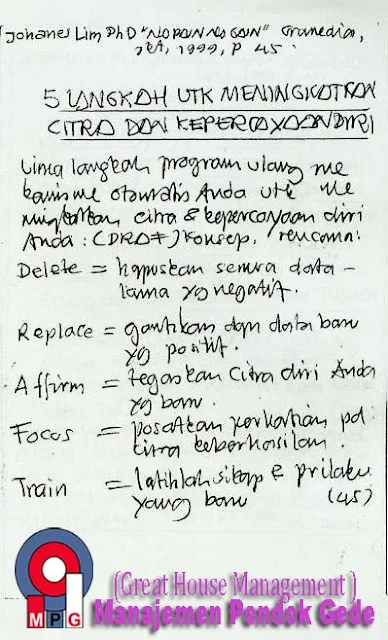 Johanes Lim PhD "NO PAIN NO GAIN" Gramedia,
Jkt, 1999, p 45.
5 LANGKAH UTK MENINGKATKAN
CITRA DAN KEPERCAYAAN DIRI
Lima langkah program ulang me
kanisme otomatis Anda utk me
ningkatkan citra & kepercayaan diri
Anda: (DRAFT) konsep, rencana:
Delete = hapuskan semua data-
lama yg negatif.
Replace = gantikan dgn data baru
yg positif.
Affirm = tegaskan Citra diri Anda
yg baru.
Focus = pusatkan perhatian pd
citra keberhasilan.
Train = latihlah sikap & prilaku
yang baru (45)
MPG
(Great House Management)
Manajemen Pondok Gede